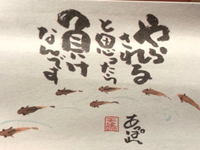 やらされる
と思ったら
の負け
なんです